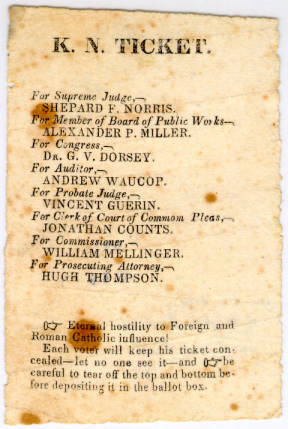 K. N. TICKET.
For Supreme Judge,
SHEPARD F. NORRIS.
For Member of Board of Public Works
ALEXANDER P. MILLER.
For Congress,
DR. G. V. DORSEY.
For Auditor,
ANDREW WAUCOP.
For Probate Judge,
VINCENT GUERIN.
For Clerk of Court of Common Pleas,
JONATHAN COUNTS.
For Commissioner,
WILLIAM MELLINGER.
For Prosecuting Attorney,
HUGH THOMPSON.
☞ Eternal hostility to Foreign and
Roman Catholic influence!
Each voter will keep his ticket con-
cealed—let no one see it—and ☞ be
careful to tear off the top and bottom be-
fore depositing it in the ballot box.